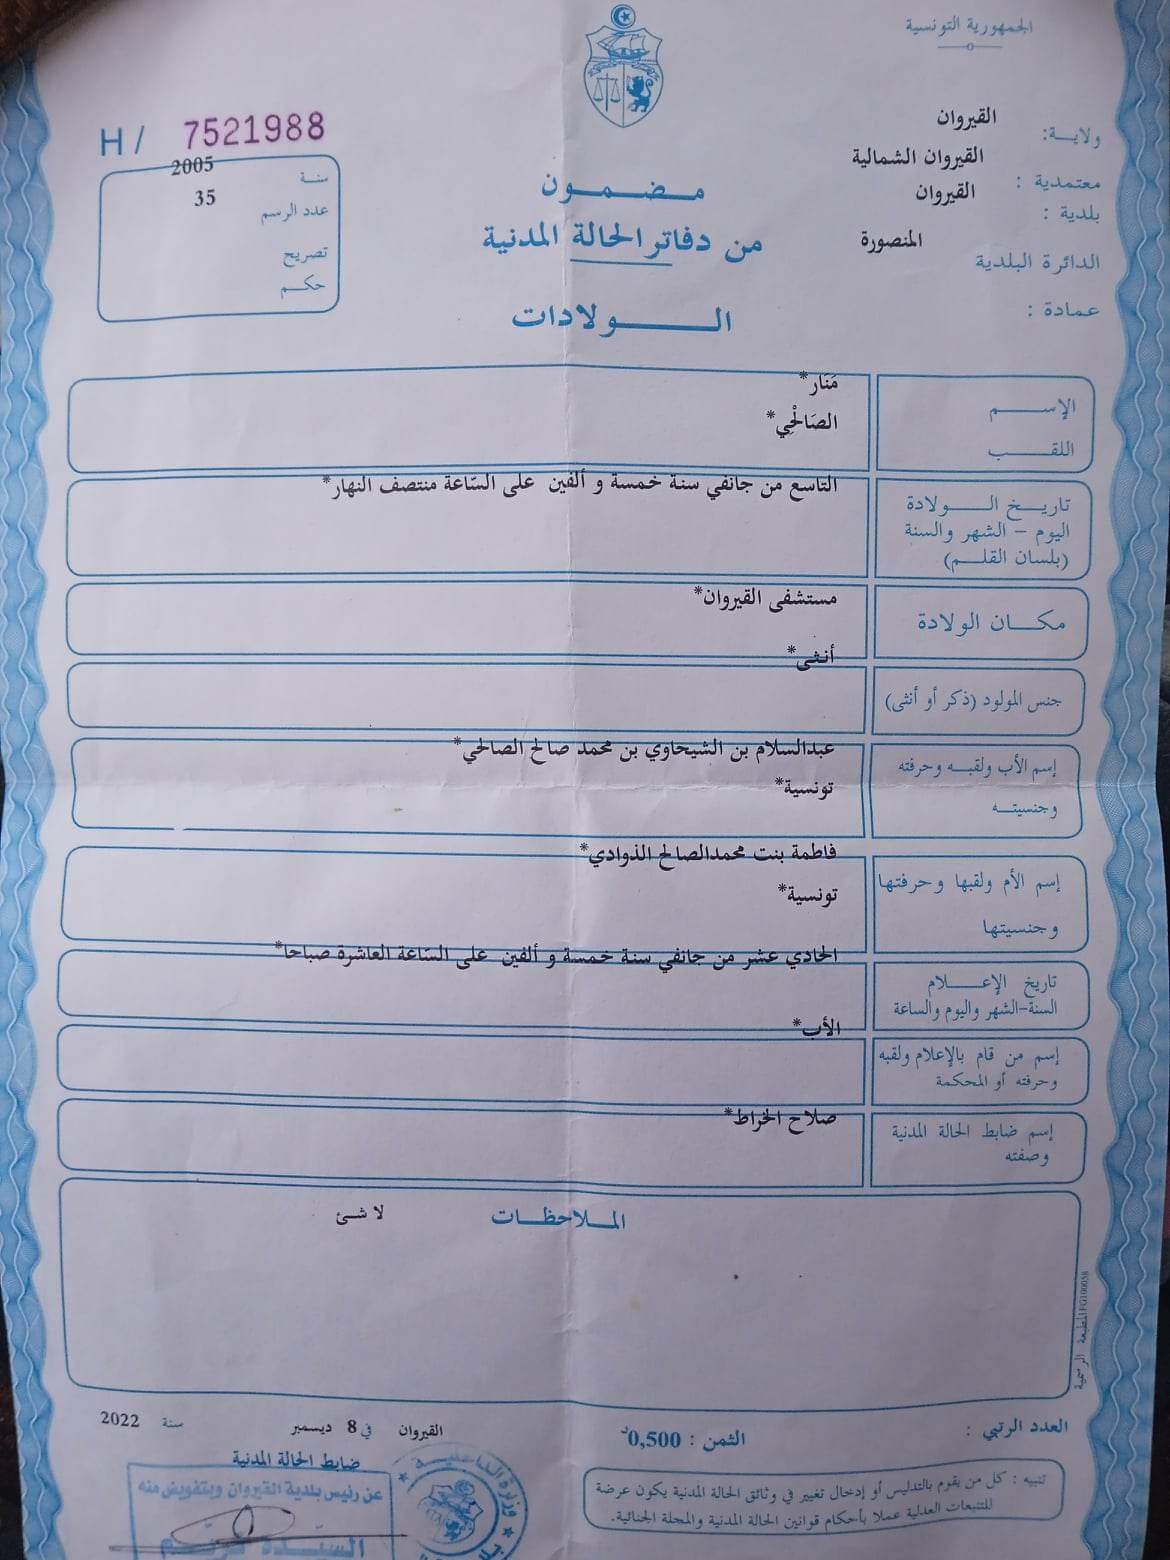 الجمهورية التونسية
ولايـــة: القيروان
معتمدية : القيروان الشمالية
بلدية : القيروان
الدائرة البلدية المنصورة
عمادة :
H / 7521988
سنة 2005
عدد الرسم 35
تصريح
حكم
مضمون
من دفاتر الحالة المدنية
الـــولادات
الإســـم مَنَار*
اللقـــب الصَالْحِي*
تاريـــخ الـــولادة التاسع من جانفي سنة خمسة و ألفين على السّاعة منتصف النهار*
اليوم – الشهر والسنة
(بلسان القلـــم)
مكـــان الولادة مستشفى القيروان*
أنثى*
جنس المولود (ذكر أو أنثى)
إسم الأب ولقبـــه وحرفته عبدالسلام بن الشيحاوي بن محمد صالح الصالحي*
وجنسيتـــه تونسية*
إسم الأم ولقبها وحرفتها فاطمة بنت محمدالصالح الذوادي*
وجنسيتها تونسية*
تاريخ الإعـــلام الحادي عشر من جانفي سنة خمسة و ألفين على السّاعة العاشرة صباحا*
السنة-الشهر واليوم والساعة
الأب*
إسم من قام بالإعلام ولقبه
وحرفته أو المحكمة
إسم ضابط الحالة المدنية صلاح الخراط*
وصفته
الملاحظات لا شئ
المطبعة الرسمية
العدد الرتبي :
الثمن : 0,500د
القيروان في 8 ديسمبر سنة 2022
ضابط الحالة المدنية
عن رئيس بلدية القيروان وبتفويض منه
وزارة الداخلية
تنبيه : كل من يقوم بالتدليس أو إدخال تغيير في وثائق الحالة المدنية يكون عرضة
للتتبعات العدلية عملا بأحكام قوانين الحالة المدنية والمجلة الجنائية.